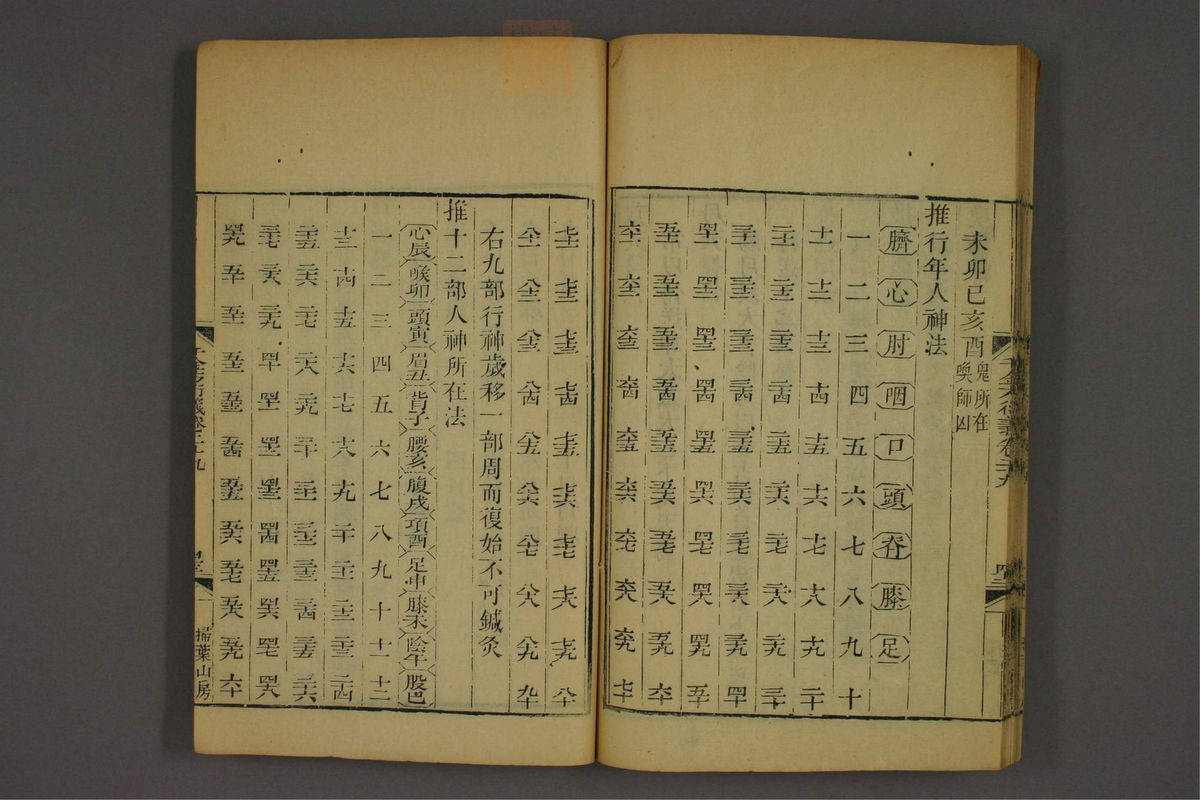 千金方衍義卷二十九
未卯巳亥酉鬼所在
喚師凶
推行年人神法
臍 心 肘 咽 口 頭 脊 膝 足
一 二 三 四 五 六 七 八 九 十
十一 十二 十三 十四 十五 十六 十七 十八 十九 二十
二十一 二十二 二十三 二十四 二十五 二十六 二十七 二十八 二十九 三十
三十一 三十二 三十三 三十四 三十五 三十六 三十七 三十八 三十九 四十
四十一 四十二 四十三 四十四 四十五 四十六 四十七 四十八 四十九 五十
五十一 五十二 五十三 五十四 五十五 五十六 五十七 五十八 五十九 六十
六十一 六十二 六十三 六十四 六十五 六十六 六十七 六十八 六十九 七十
七十一 七十二 七十三 七十四 七十五 七十六 七十七 七十八 七十九 八十
八十一 八十二 八十三 八十四 八十五 八十六 八十七 八十八 八十九 九十
右九部行神歲移一部周而復始不可鍼灸
推十二部人神所在法
心辰 喉卯 頭寅 眉丑 背子 腰亥 腹戌 項酉 足申 膝未 陰午 股巳
一 二 三 四 五 六 七 八 九 十 十一 十二
十三 十四 十五 十六 十七 十八 十九 二十 二十一 二十二 二十三 二十四
二十五 二十六 二十七 二十八 二十九 三十 三十一 三十二 三十三 三十四 三十五 三十六
三十七 三十八 三十九 四十 四十一 四十二 四十三 四十四 四十五 四十六 四十七 四十八
四十九 五十 五十一 五十二 五十三 五十四 五十五 五十六 五十七 五十八 五十九 六十
千金方衍義卷二十九
掃葉山房